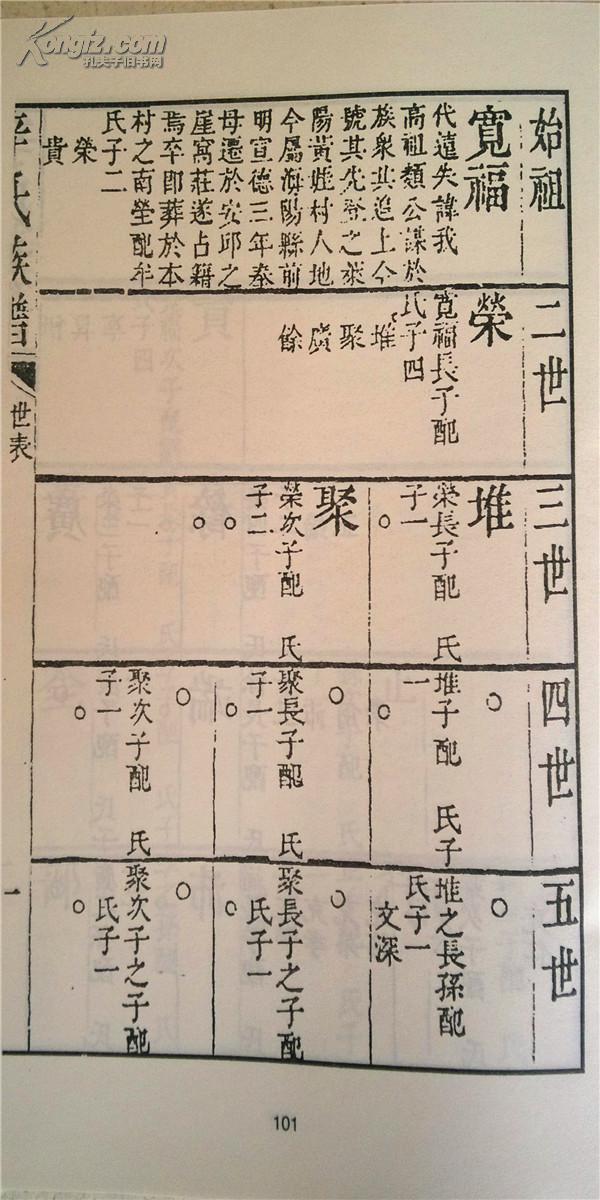 Kongfz.com
孔夫子旧书网
始祖
寬福
代遠失諱我
高祖類公謀於
族衆共追上今
號其先登之萊
陽黃姓村人地
今屬海陽縣前
明宣德三年奉
母遷於安邱之
崖窩莊遂占籍
焉卒即葬於本
村之南塋配牟
氏子二
榮
貴
二世
榮
寬福長子配
氏子四
堆
聚
廣
餘
三世
堆
榮長子配 氏
子一
○
聚
榮次子配 氏
子二
○
○
四世
○
堆子配 氏子
一
○
○
聚長子配 氏
子一
○
○
聚次子配 氏
子一
○
五世
○
堆之長孫配
氏子一
文深
○
聚長子之子配
氏子一
○
○
聚次子之子配
氏子一
○
氏族譜
世表
一
101